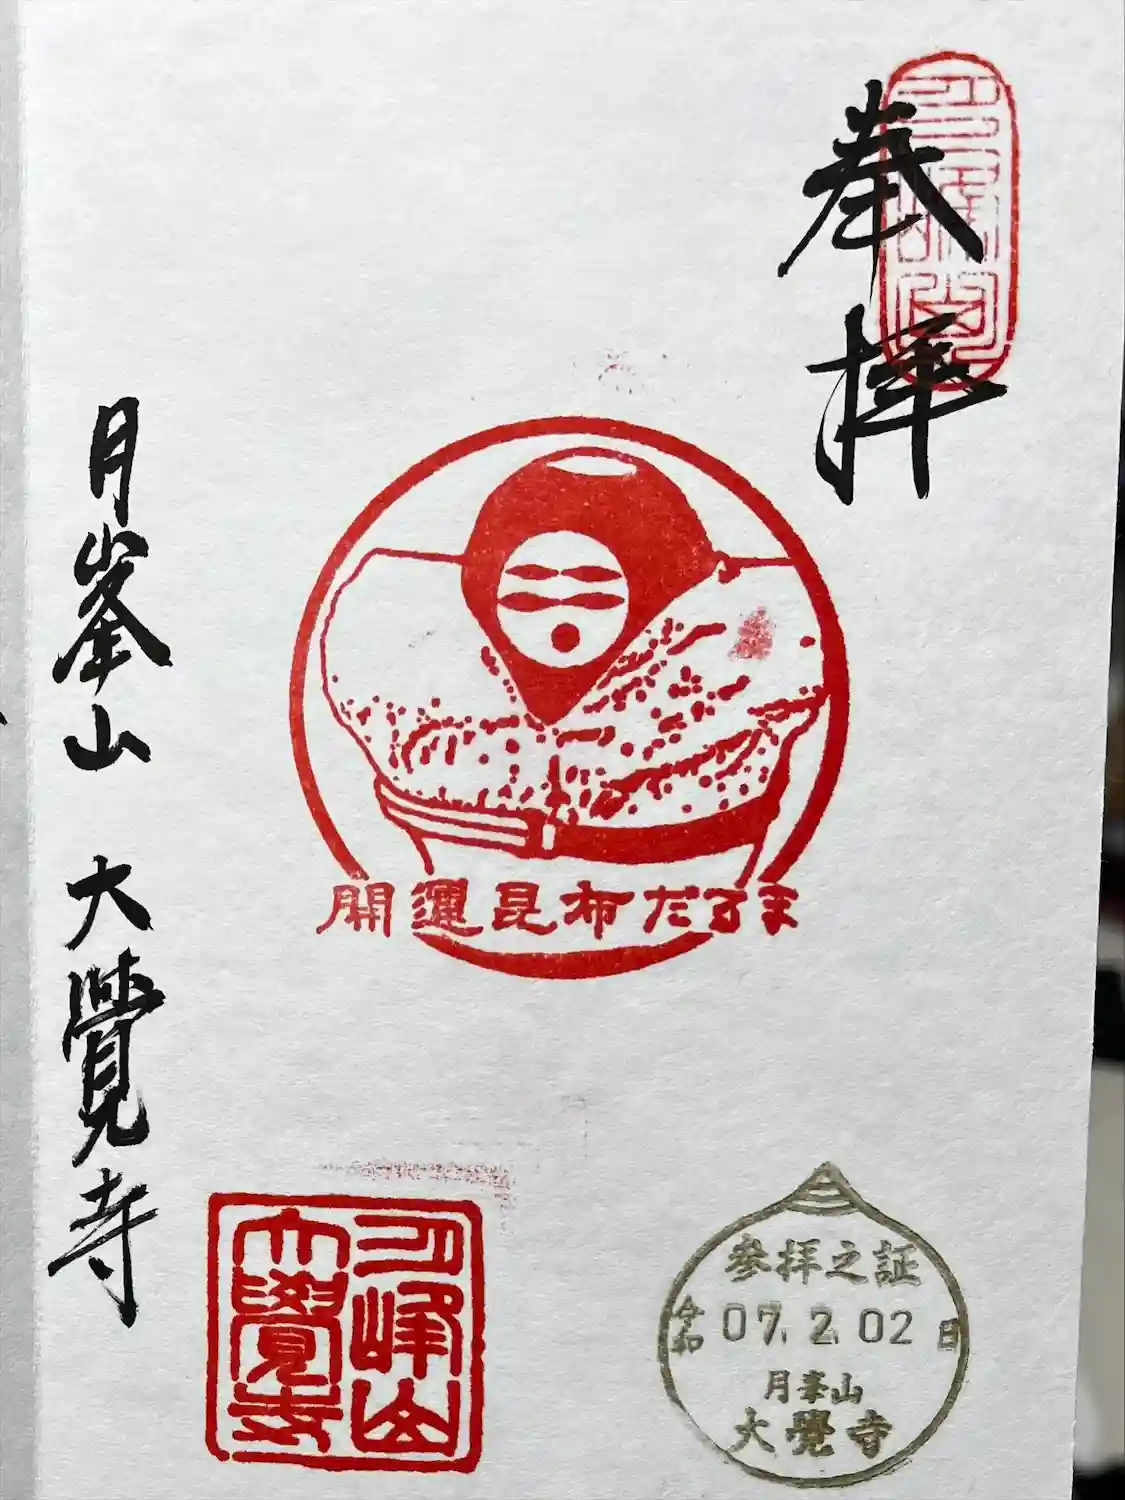 奉拝
開運昆布だるま
月峯山　大覺寺
月峰山
大覺寺
参拝之証
令和 07. 2. 02 日
月峯山
大覺寺